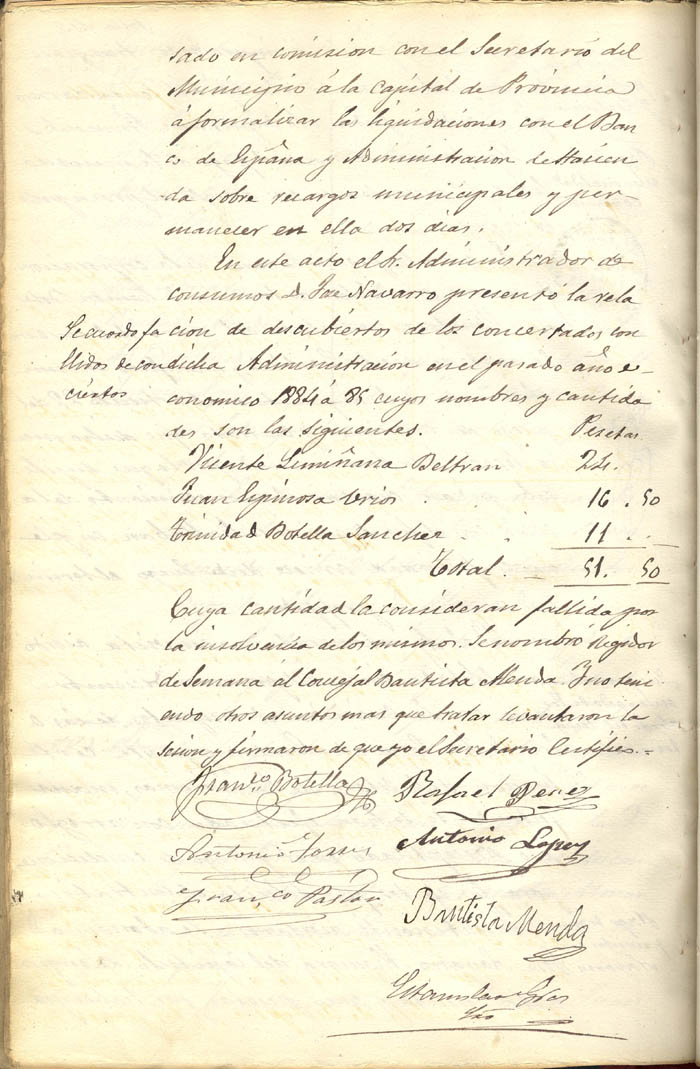 sado en comision con el Secretario del
Municipio á la capital de Provincia
á formalizar las liquidaciones con el Ban
co de España y Administracion de Hacien
da sobre recargos municipales y per-
manecer en ella dos dias.
En este acto el Sr. Administrador de
consumos D. José Navarro presentó la rela
cion de descubiertos de los concertados con
dicha Administracion en el pasado año e-
conomico 1884 á 85 cuyos nombres y cantida
des son las siguientes. Pesetas
Se acordó fa
llidos de con
ciertos
Vicente Limiñana Beltran 24.
Juan Espinosa Verios . . 16 . 50
Trinidad Botella Sanchez . . 11 . .
Total . 51. 50
Cuya cantidad la consideran fallida por
la insolvencia de los mismos. Se nombró Regidor
de Semana al Concejal Bautista Menda. Y no teni
endo otros asuntos mas que tratar levantaron la
sesion y firmaron de que yo el Secretario Certifico.=
Franco. Botella
Rafael Perez
Antonio Torres
Antonio Lopez
Franco Pastor
Bautista Menda
Estanislao Gras
Srio